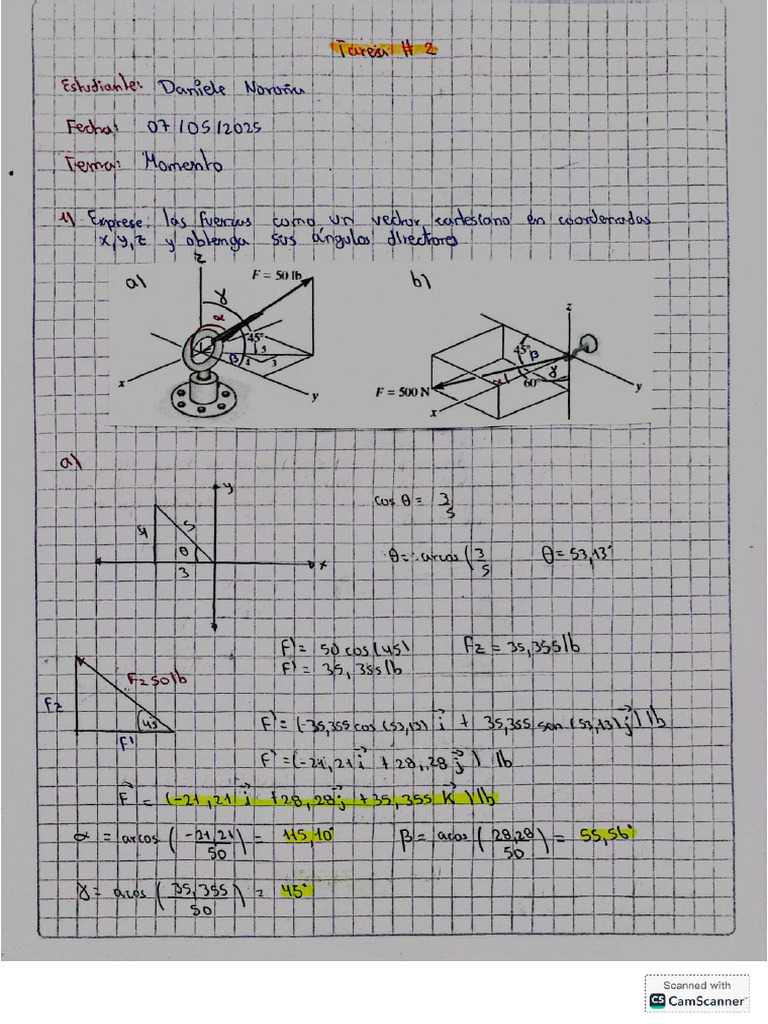 Tarea # 2
Estudiante: Daniele Noroña
Fecha: 07/05/2025
Tema: Momento
1) Exprese las fuerzas como un vector cartesiano en coordenadas
x, y, z y obtenga sus ángulos directores
a)
z
F = 50 lb
γ
α
45°
5
β
4
3
x
y
b)
z
45°
β
α
γ
60°
F = 500 N
x
y
a)
y
4
5
θ
3
x
cos θ = 3/5
θ = arcos (3/5
θ = 53,13°
F' = 50 cos (45)
Fz = 35,355 lb
F' = 35,355 lb
F=50lb
Fz
45°
F'
F' = (-35,355 cos (53,13) i + 35,355 sen (53,13) j) lb
F' = (-21,21 i + 28,28 j) lb
F = (-21,21 i + 28,28 j + 35,355 K) lb
α = arcos (-21,21/50) = 115,10°
β = acos (28,28/50) = 55,56°
γ = acos (35,355/50) = 45°
Scanned with
CS CamScanner